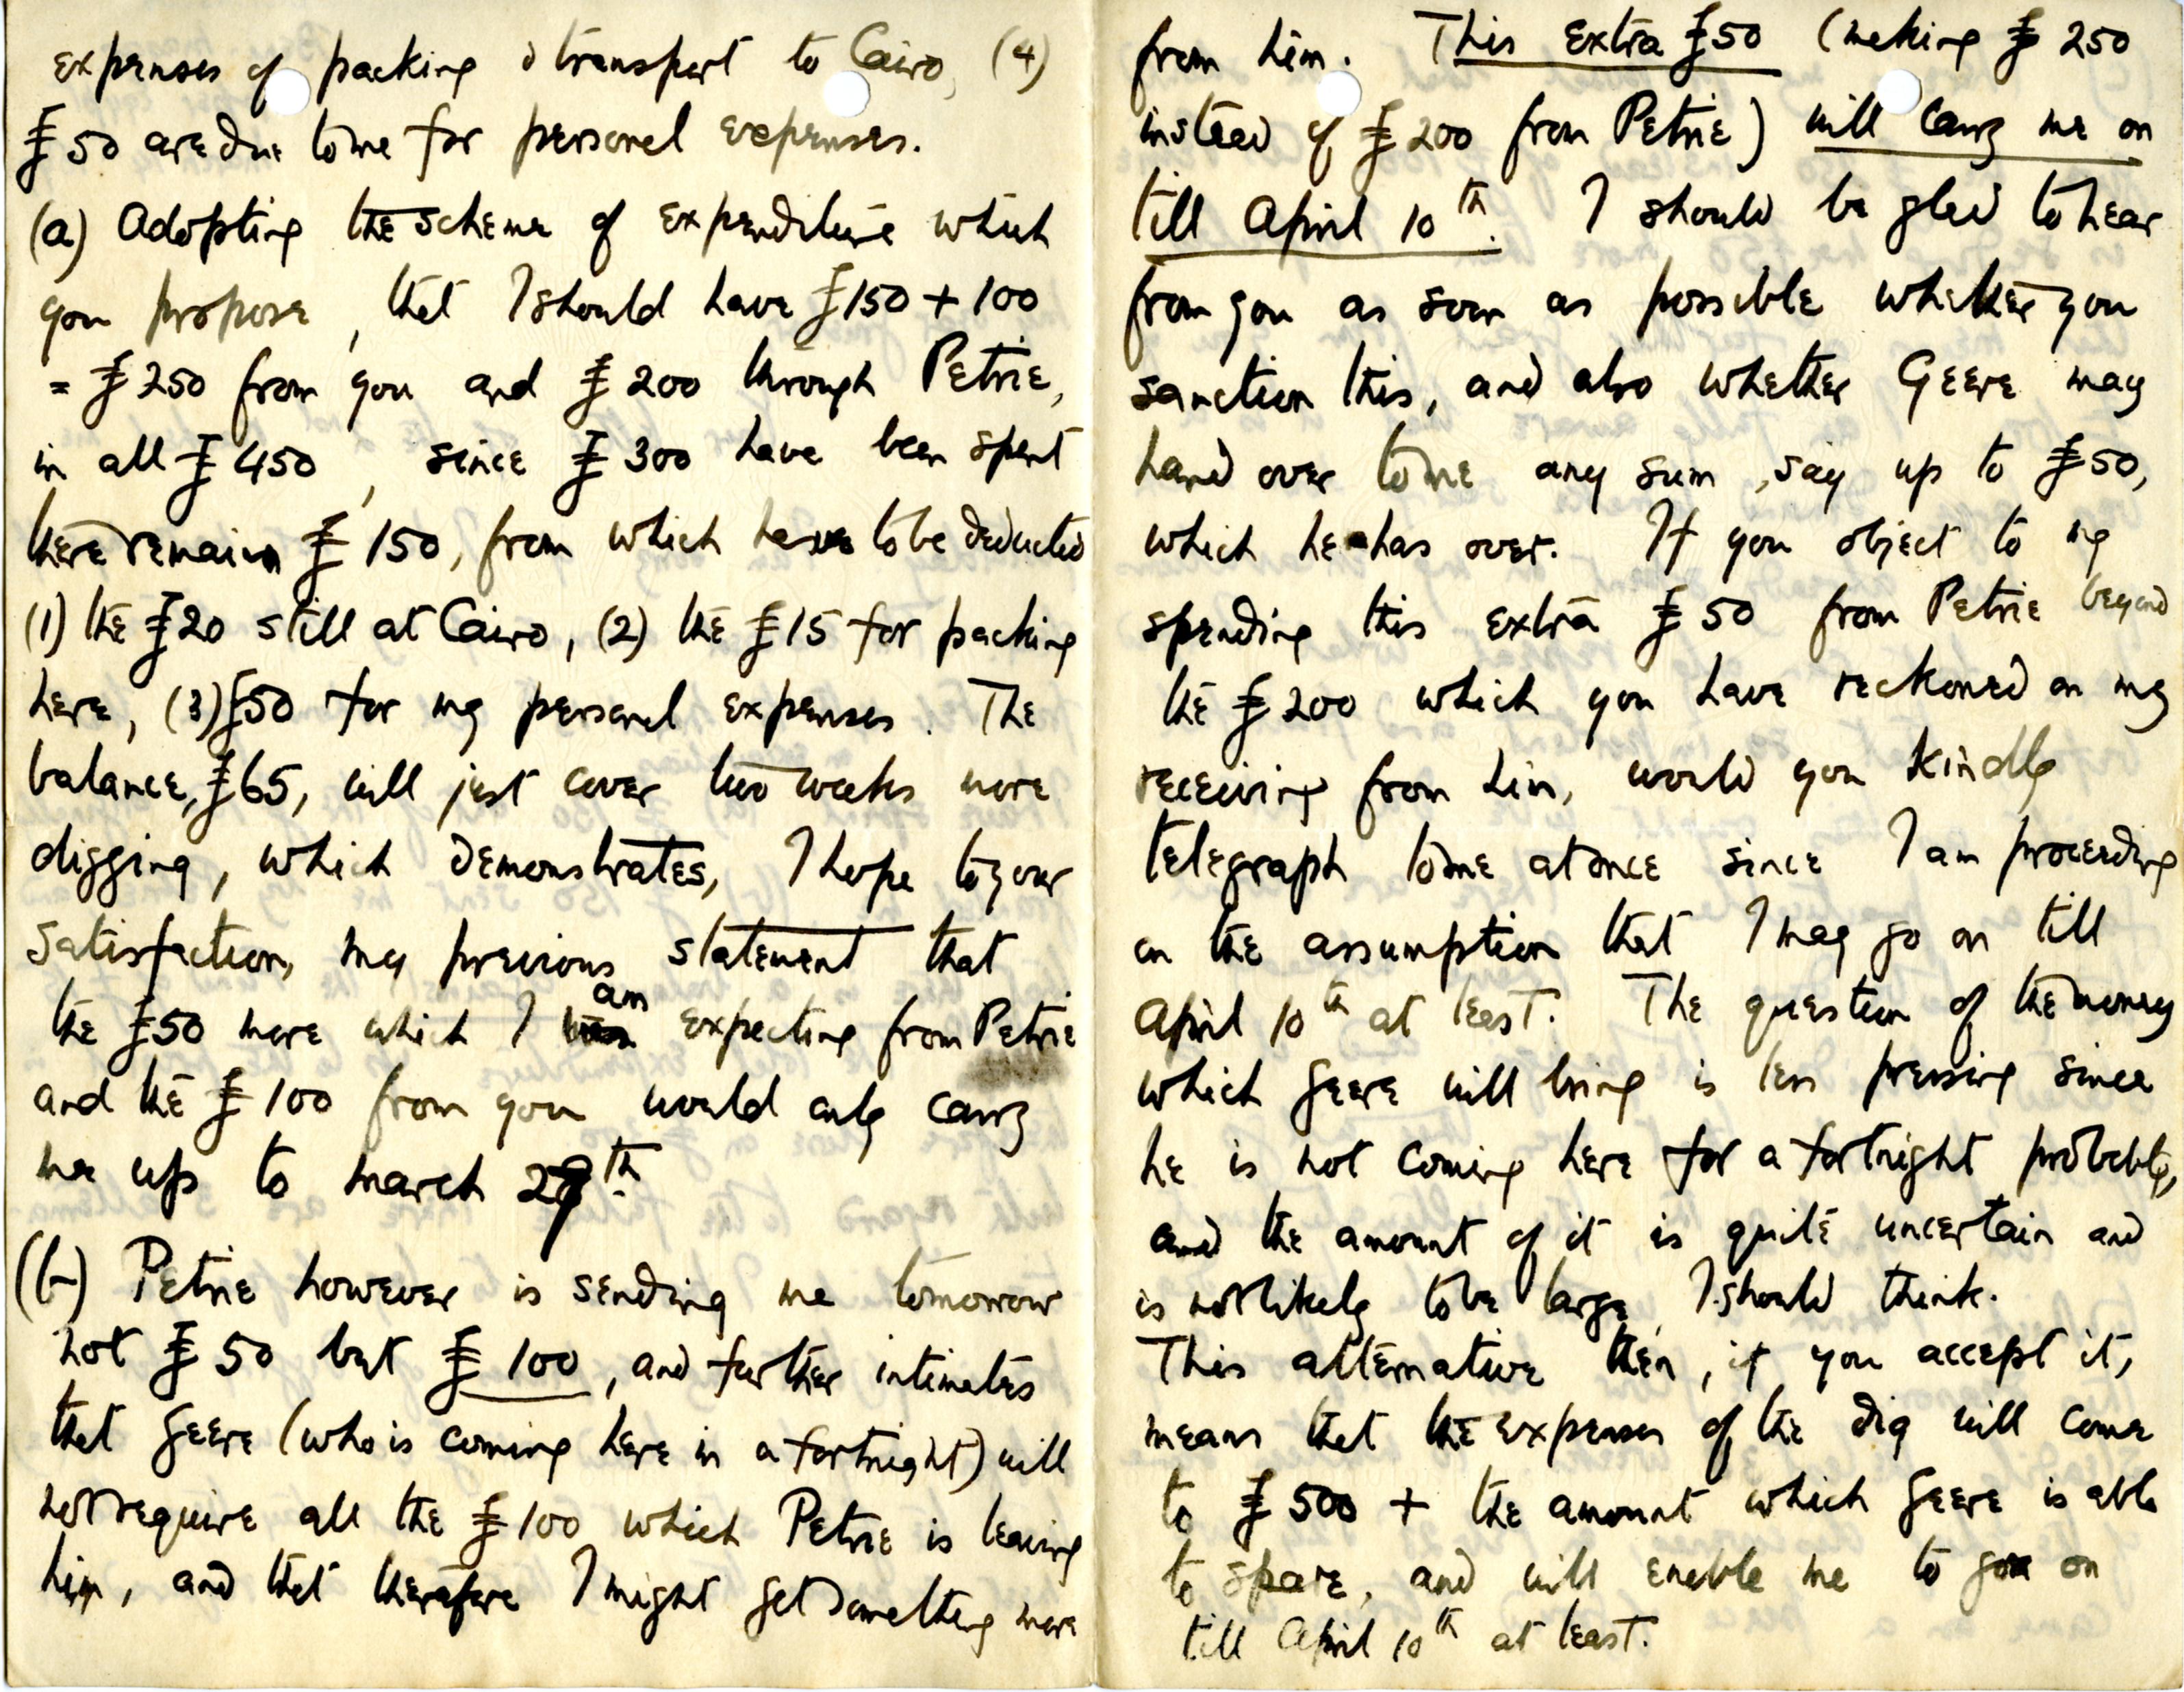 expenses of packing & transport to Cairo, (4)
£50 are due to me for personal expenses.
(a) Adopting the scheme of expenditure which
you propose, that I should have £150 + 100
= £250 from you and £200 through Petrie,
in all £450, since £300 have been spent
there remain £150, from which have to be deducted
(1) the £20 still at Cairo, (2) the £15 for packing
here, (3) £50 for my personal expenses. The
balance, £65, will just cover two weeks more
digging, which demonstrates, I hope to your
satisfaction, my previous statement that
the £50 more which I am expecting from Petrie
and the £100 from you would only carry
me up to March 27th.
(b) Petrie however is sending me tomorrow
not £50 but £100, and further intimates
that Geere (who is coming here in a fortnight) will
not require all the £100 which Petrie is leaving
him, and that therefore I might get something more
from him. This extra £50 (making £250
instead of £200 from Petrie) will carry me on
till April 10th. I should be glad to hear
from you as soon as possible whether you
sanction this, and also whether Geere may
hand over to me any sum, say up to £50,
which he has over. If you object to my
spending this extra £50 from Petrie beyond
the £200 which you have reckoned on my
receiving from him, would you kindly
telegraph to me at once since I am proceeding
on the assumption that I may go on till
April 10th at least. The question of the money
which Geere will bring is less pressing since
he is not coming here for a fortnight probably,
and the amount of it is quite uncertain and
is not likely to be large, I should think.
This alternative then, if you accept it,
means that the expenses of the dig will come
to £500 + the amount which Geere is able
to spare, and will enable me to go on
till April 10th at least.